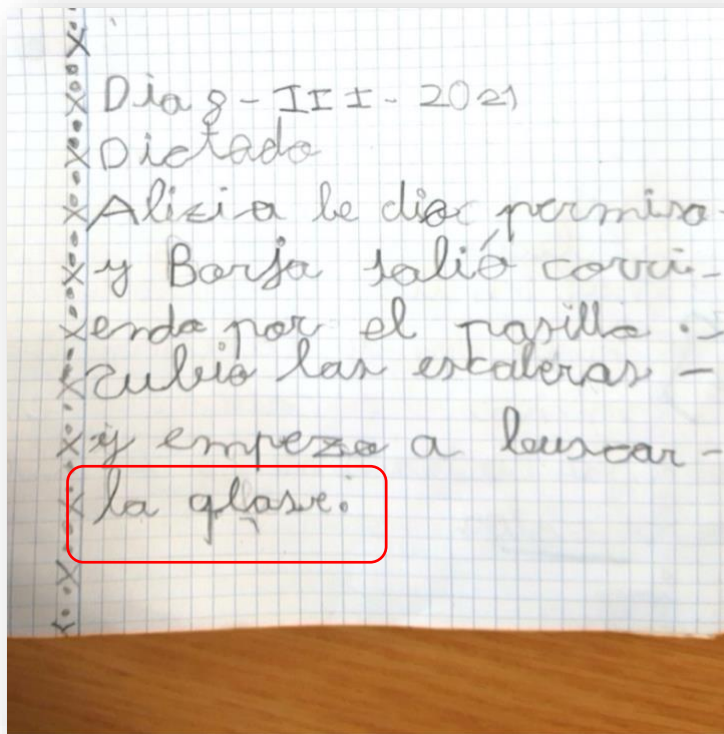 Dia 8-III-2021
Dictado
Alicia le dio permiso-
y Borja salió corri-
endo por el pasillo.-
zubio las escaleras -
y empezo a buscar-
la qlase.